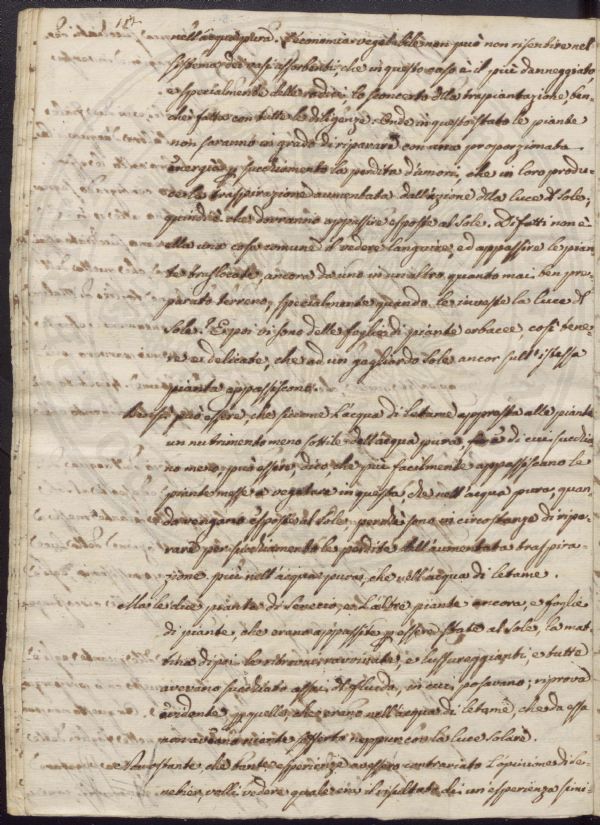 182
nell'acqua pura. L'economia vegetabile non può non risentire nel
sistema dei vasi assorbenti, che in questo caso è il più danneggiato,
e specialmente delle radici lo sconcerto della traspiantazione, ben-
chè fatta con tutte le diligenze. Onde in questo stato le piante
non saranno in grado di riparare con una proporzionata
energia di succhiamento la perdita d'umori, che in loro produ-
ce la traspirazione aumentata dall'azione della luce del sole;
quindi è che dovranno appassire esposte al sole. Di fatti non è
ella una cosa comune il vedere languire, ed appassire le pian-
te traslocate, ancora da uno in un altro quanto mai ben pre-
parato terreno, specialmente quando le investe la luce del
Sole? E poi vi sono delle foglie di piante erbacee, così tene-
re e delicate, che ad un gagliardo sole ancor sull'istessa
pianta appassiscono.
può essere, che siccome l'acqua di letame appresta alle piante
un nutrimento meno sottile dell'acqua pura, di cui succhia-
no meno, può essere, dico, che più facilmente appassiscano le
piante messe a vegetare in questa che nell'acqua pura, quan-
do vengano esposte al Sole, perchè sono in circostanze di ripa-
rare per succhiamento le perdite dell'aumentata traspira-
zione più nell'acqua pura, che nell'acqua di letame.
Ma le due piante di Senecio, e l'altre piante ancora, e foglie
di piante, che erano appassite per essere state al Sole, la mat-
tina dipoi le ritrovai ravvivate, e lussureggianti, e tutte
avevano succhiato assai del fluido, in cui posavano; riprova
evidente per quelle, che erano nell'acqua di letame, che da essa
non avevano niente sofferto neppur con la luce solare.
Nonostante, che tante esperienze avessero contrariato l'opinione di Se-
nebier, volli vedere quale era il risultato di un'esperienza simi-